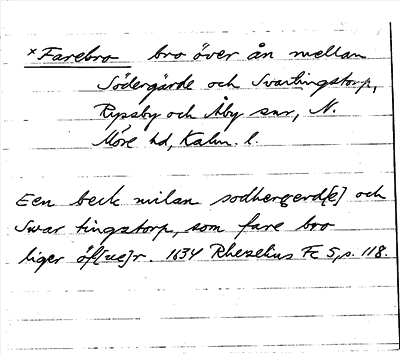 ×Farebro bro över ån mellan
Södergärde och Svartingstorp,
Ryssby och Åby snr, N.
Möre hd, Kalm. l.
Een beck milan sodhergerd[e] och
Swar tingstorp, som fare bro
liger öf[ue]r. 1634 Rhezelius Fc 5, s. 118.